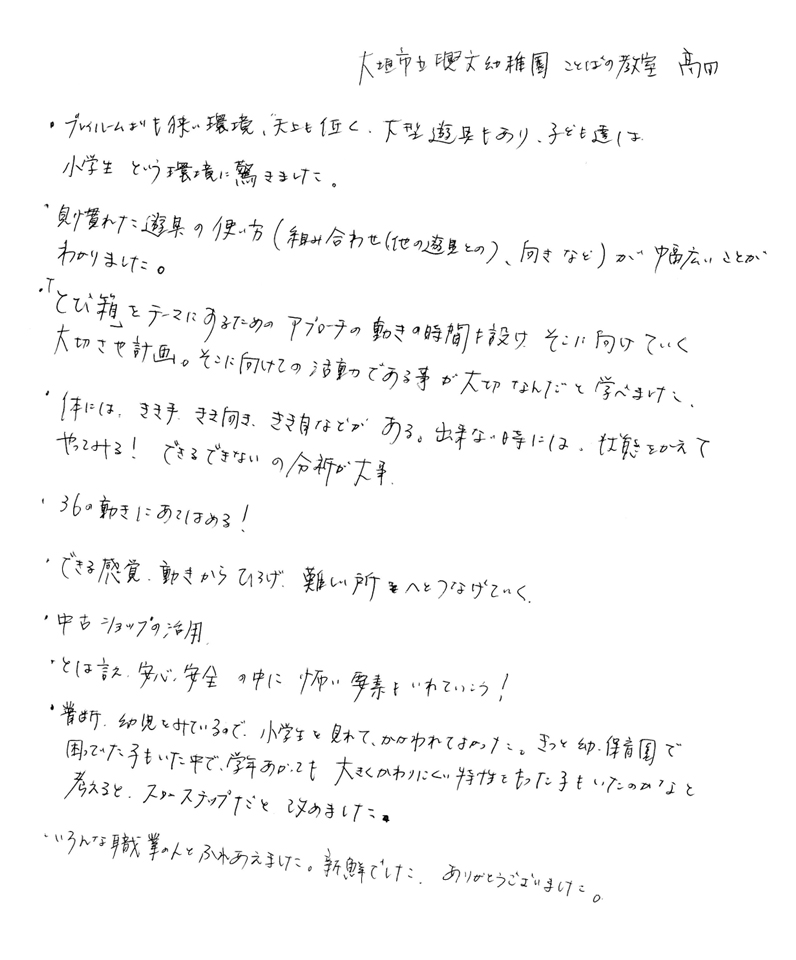 大垣市立興文幼稚園 ことばの教室 高田
・プレイルームよりも狭い環境、天上も低く、大型遊具もあり、子ども達は
小学生 という環境に驚きました。
・見慣れた遊具の使い方(組み合わせ(他の遊具との)、向きなど)が幅広いことが
わかりました。
・「とび箱」をテーマにするためのアプローチの動きの時間も設け そこに向けていく
大切さや計画。そこに向けての活動である事が大切なんだと学べました、
・体には、きき手、きき向き、きき目などがある。出来ない時には、状態をかえて
やってみる! できるできないの分析が大事、
・36の動きにあてはめる!
・できる感覚、動きからひろげ、難しい所へとつなげていく、
・中古ショップの活用
・とは言え、安心、安全の中に怖い要素をいれていこう!
・普断、幼児をみているので、小学生を見れて、かかわれてよかった。きっと幼、保育園で
困っていた子もいた中で、学年あがっても 大きくかわりにくい特性をもった子もいたのかなと
考えると、スモールステップだと 改めました。
・いろんな職業の人とふれあえました。新鮮でした、ありがとうございました。